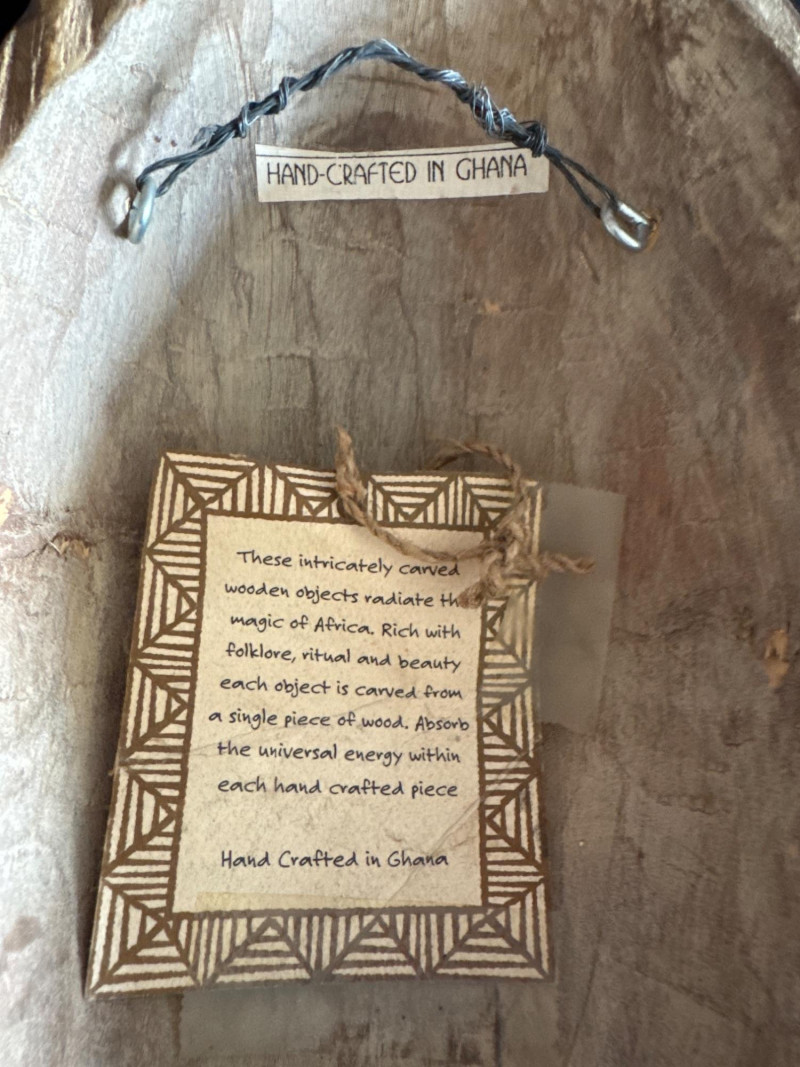 HAND-CRAFTED IN GHANA
These intricately carved
wooden objects radiate th
magic of Africa. Rich with
folklore, ritual and beauty
each object is carved from
a single piece of wood. Absorb
the universal energy within
each hand crafted piece
Hand Crafted in Ghana